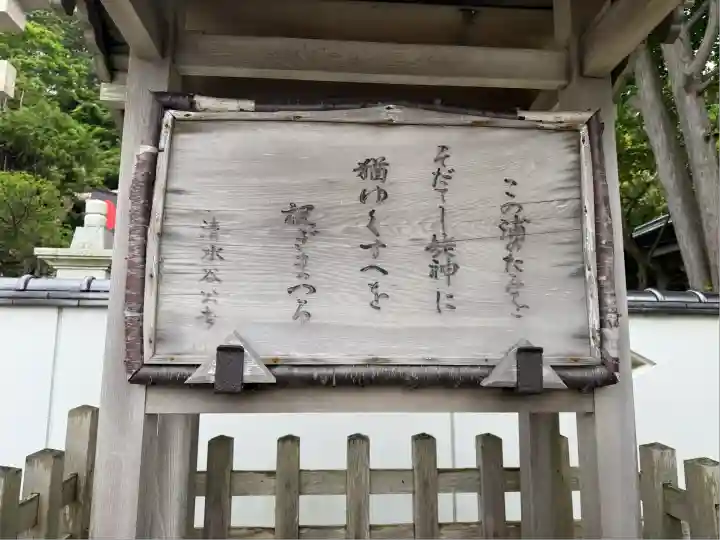 この浦のたみを
そだてし姥神に
猶ゆくすへを
祝ひまつる
清水谷公考